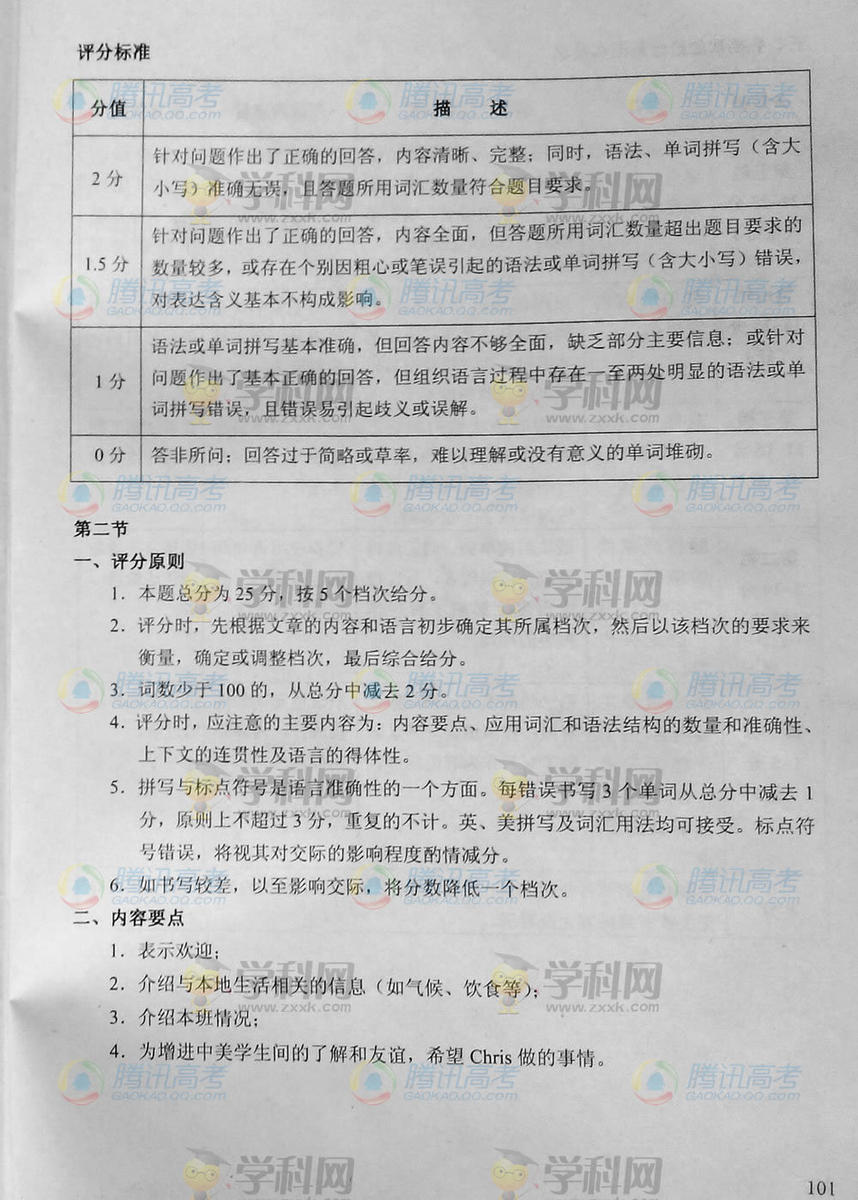 评分标准
分值 描 述
2 分 针对问题作出了正确的回答，内容清晰、完整；同时，语法、单词拼写（含大
小写）准确无误，且答题所用词汇数量符合题目要求。
1.5 分 针对问题作出了正确的回答，内容全面，但答题所用词汇数量超出题目要求的
数量较多，或存在个别因粗心或笔误引起的语法或单词拼写（含大小写）错误，
对表达含义基本不构成影响。
1 分 语法或单词拼写基本准确，但回答内容不够全面，缺乏部分主要信息；或针对
问题作出了基本正确的回答，但组织语言过程中存在一至两处明显的语法或单
词拼写错误，且错误易引起歧义或误解。
0 分 答非所问；回答过于简略或草率，难以理解或没有意义的单词堆砌。
第二节
一、评分原则
1．本题总分为 25 分，按 5 个档次给分。
2．评分时，先根据文章的内容和语言初步确定其所属档次，然后以该档次的要求来
衡量，确定或调整档次，最后综合给分。
3．词数少于 100 的，从总分中减去 2 分。
4．评分时，应注意的主要内容为：内容要点、应用词汇和语法结构的数量和准确性、
上下文的连贯性及语言的得体性。
5．拼写与标点符号是语言准确性的一个方面。每错误书写 3 个单词从总分中减去 1
分，原则上不超过 3 分，重复的不计。英、美拼写及词汇用法均可接受。标点符
号错误，将视其对交际的影响程度酌情减分。
6．如书写较差，以至影响交际，将分数降低一个档次。
二、内容要点
1．表示欢迎；
2．介绍与本地生活相关的信息（如气候、饮食等）；
3．介绍本班情况；
4．为增进中美学生间的了解和友谊，希望 Chris 做的事情。
101
腾讯高考
GAOKAO.QQ.COM
学科网
www.zxxk.com